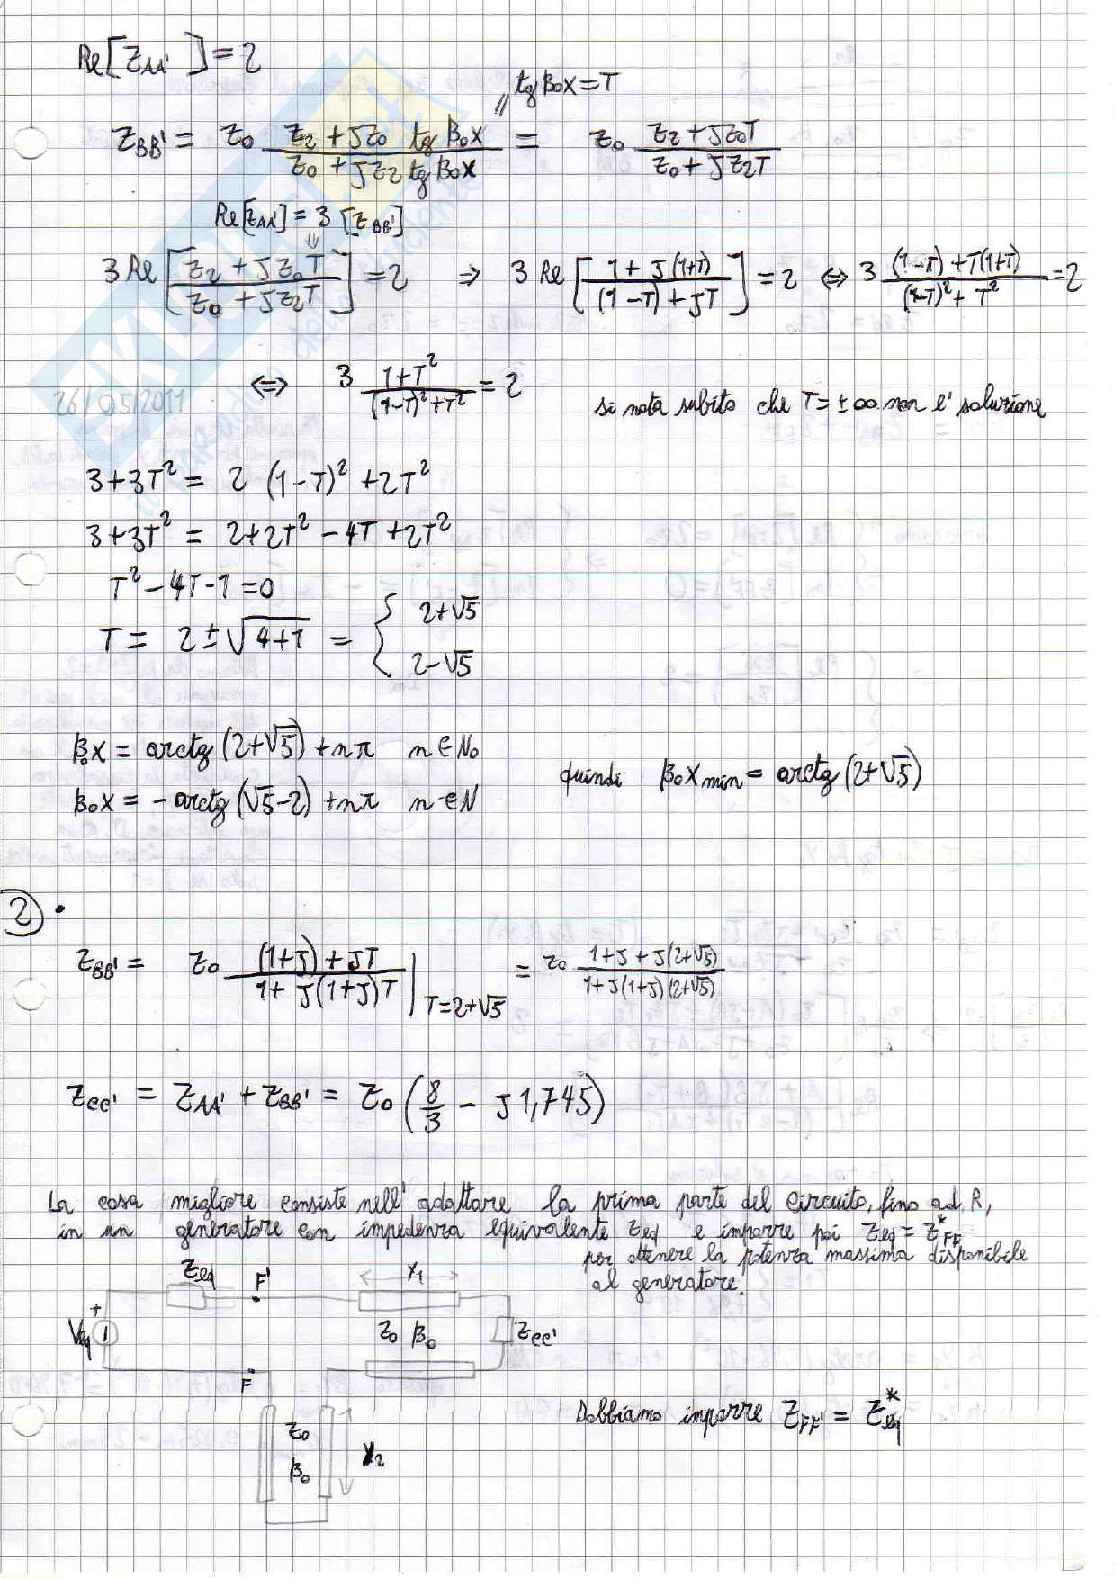 Re[Z_AA'] = 2
tg β₀x = T
Z_BB' = Z₀ (Z₂ + jZ₀ tg β₀x)/(Z₀ + jZ₂ tg β₀x) = Z₀ (Z₂ + jZ₀T)/(Z₀ + jZ₂T)
Re[Z_AA'] = 3 [Z_BB']
⇓
3 Re[(Z₂ + jZ₀T)/(Z₀ + jZ₂T)] = 2 ⇒ 3 Re[(1 + j(1+T))/((1-T) + jT)] = 2 ⇔ 3 ((1-T) + T(1+T))/((1-T)² + T²) = 2
⇔ 3 (1+T²)/((1-T)² + T²) = 2
si nota subito che T = ±∞ non è soluzione
26/05/2011
3+3T² = 2 (1-T)² + 2T²
3+3T² = 2+2T² - 4T + 2T²
T² - 4T - 1 = 0
T = 2 ± √(4+1) = { 2+√5
2-√5
β₀x = arctg (2+√5) + nπ n ∈ N₀
β₀x = - arctg (√5-2) + nπ n ∈ N
quindi β₀x min = arctg (2+√5)
② •
Z_BB' = Z₀ ((1+j) + jT)/(1 + j(1+j)T) |T=2+√5 = Z₀ (1+j + j(2+√5))/(1+j(1+j)(2+√5))
Z_CC' = Z_AA' + Z_BB' = Z₀ (8/3 - j 1,745)
La cosa migliore consiste nell' adattare la prima parte del circuito, fino ad R,
in un generatore con impedenza equivalente Zeq e imporre poi Zeq = Z*_FF'
per ottenere la potenza massima disponibile
al generatore.
Zeq F' x₁
+
Veq Z₀ β₀ Z_CC'
F
Z₀
β₀ x₂
Dobbiamo imporre Z_FF' = Z*eq